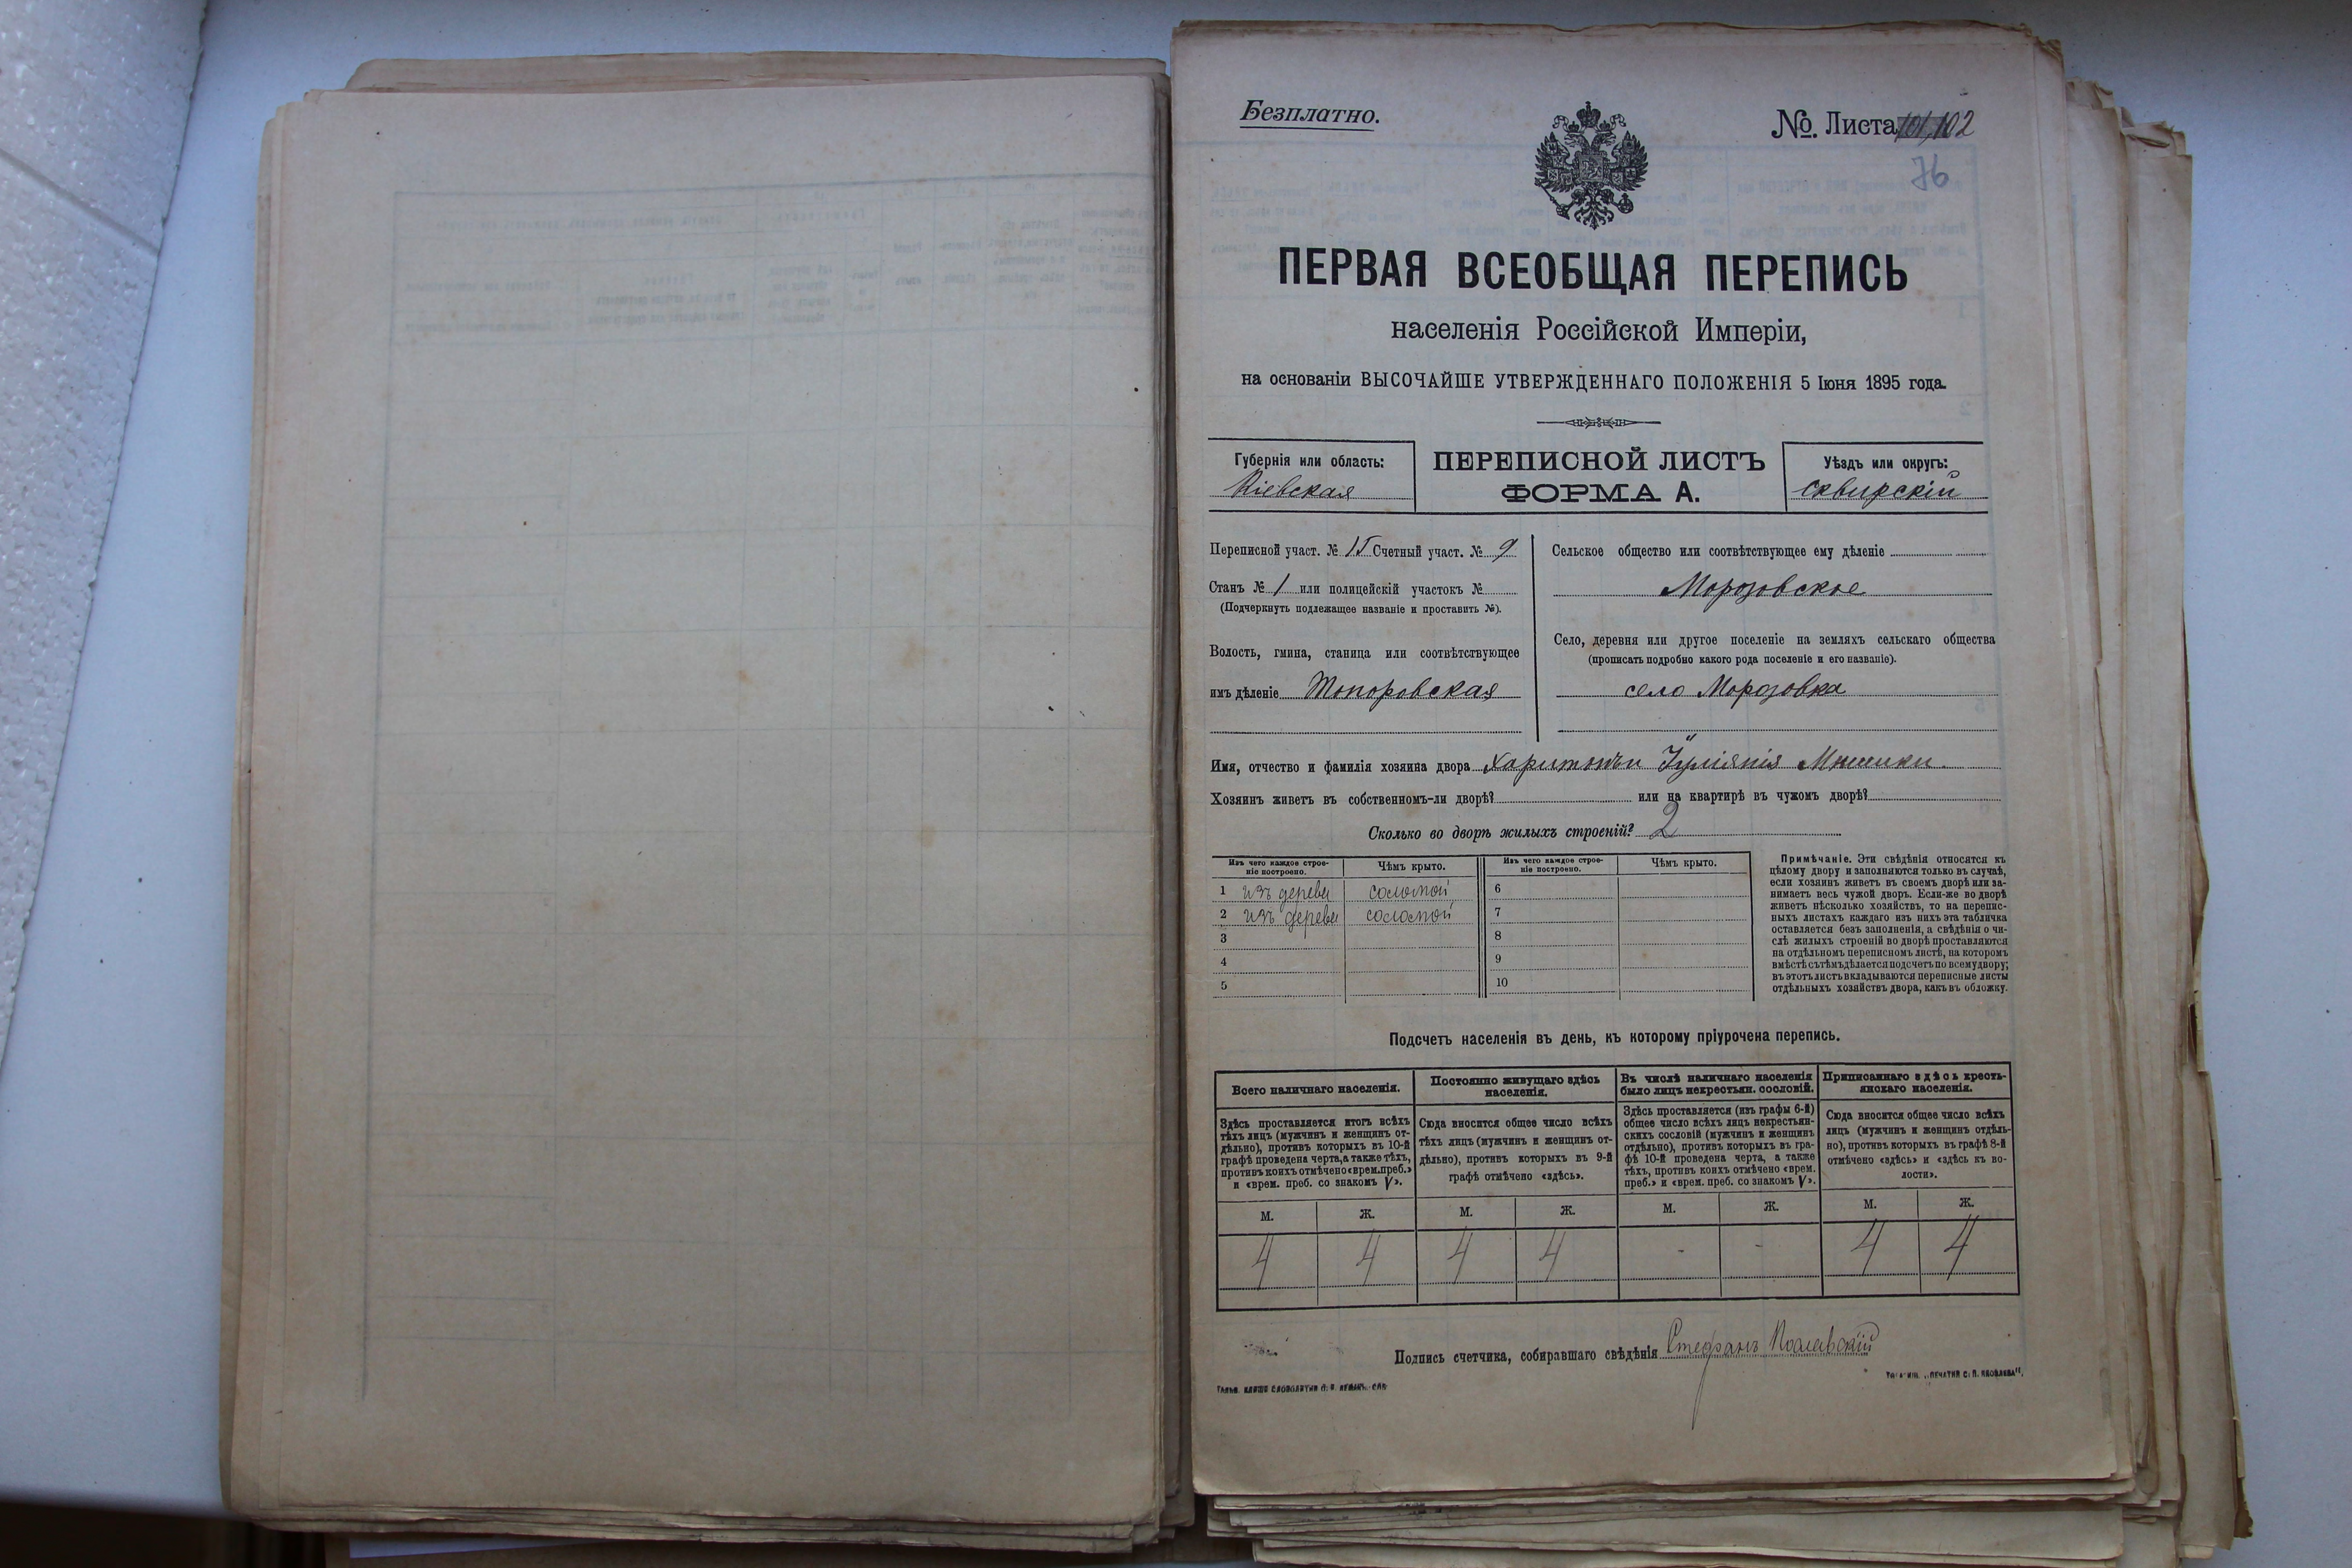 Безплатно.
№ Листа 102
76
ПЕРВАЯ ВСЕОБЩАЯ ПЕРЕПИСЬ
населенія Россійской Имперіи,
на основаніи ВЫСОЧАЙШЕ УТВЕРЖДЕННАГО ПОЛОЖЕНІЯ 5 Іюня 1895 года.
Губернія или область:
Кіевская
ПЕРЕПИСНОЙ ЛИСТЪ
ФОРМА А.
Уѣздъ или округъ:
Сквирскій
Переписной участ. № 15 Счетный участ. № 9
Станъ № 1 или полицейскій участокъ №
(Подчеркнуть подлежащее названіе и проставить №).
Волость, гмина, станица или соотвѣтствующее
имъ дѣленіе Топоровская
Сельское общество или соотвѣтствующее ему дѣленіе
Морозовское
Село, деревня или другое поселеніе на земляхъ сельскаго общества
(прописать подробно какого рода поселеніе и его названіе).
село Морозовка
Имя, отчество и фамилія хозяина двора
Хозяинъ живетъ въ собственномъ-ли дворѣ? или на квартирѣ въ чужомъ дворѣ?
Сколько во дворѣ жилыхъ строеній? 2
Изъ чего каждое строе-
ніе построено.
Чѣмъ крыто.
Изъ чего каждое строе-
ніе построено.
Чѣмъ крыто.
1 изъ дерева соломой 6
2 изъ дерева соломой 7
3 8
4 9
5 10
Примѣчаніе. Эти свѣдѣнія относятся къ
цѣлому двору и заполняются только въ случаѣ,
если хозяинъ живетъ въ своемъ дворѣ или за-
нимаетъ весь чужой дворъ. Если-же во дворѣ
живетъ нѣсколько хозяйствъ, то на перепис-
ныхъ листахъ каждаго изъ нихъ эта табличка
оставляется безъ заполненія, а свѣдѣнія о чи-
слѣ жилыхъ строеній во дворѣ проставляются
на отдѣльномъ переписномъ листѣ, на которомъ
вмѣстѣ съ тѣмъ дѣлается подсчетъ по всему двору;
въ этотъ листъ вкладываются переписные листы
отдѣльныхъ хозяйствъ двора, какъ въ обложку.
Подсчетъ населенія въ день, къ которому пріурочена перепись.
Всего наличнаго населенія.
Здѣсь проставляется итогъ всѣхъ
тѣхъ лицъ (мужчинъ и женщинъ от-
дѣльно), противъ которыхъ въ 10-й
графѣ проведена черта, а также тѣхъ,
противъ коихъ отмѣчено «врем. преб.»
и «врем. преб. со знакомъ V».
Постоянно живущаго здѣсь
населенія.
Сюда вносится общее число всѣхъ
тѣхъ лицъ (мужчинъ и женщинъ от-
дѣльно), противъ которыхъ въ 9-й
графѣ отмѣчено «здѣсь».
Въ числѣ наличнаго населенія
было лицъ некрестьян. сословій.
Здѣсь проставляется (изъ графы 6-й)
общее число всѣхъ лицъ некрестьян-
скихъ сословій (мужчинъ и женщинъ
отдѣльно), противъ которыхъ въ гра-
фѣ 10-й проведена черта, а также
тѣхъ, противъ коихъ отмѣчено «врем.
преб.» и «врем. преб. со знакомъ V».
Приписаннаго здѣсь кресть-
янскаго населенія.
Сюда вносится общее число всѣхъ
лицъ (мужчинъ и женщинъ отдѣль-
но), противъ которыхъ въ графѣ 8-й
отмѣчено «здѣсь» и «здѣсь къ во-
лости».
М. Ж. М. Ж. М. Ж. М. Ж.
4 4 4 4 - - 4 4
Подпись счетчика, собиравшаго свѣдѣнія Стефанъ